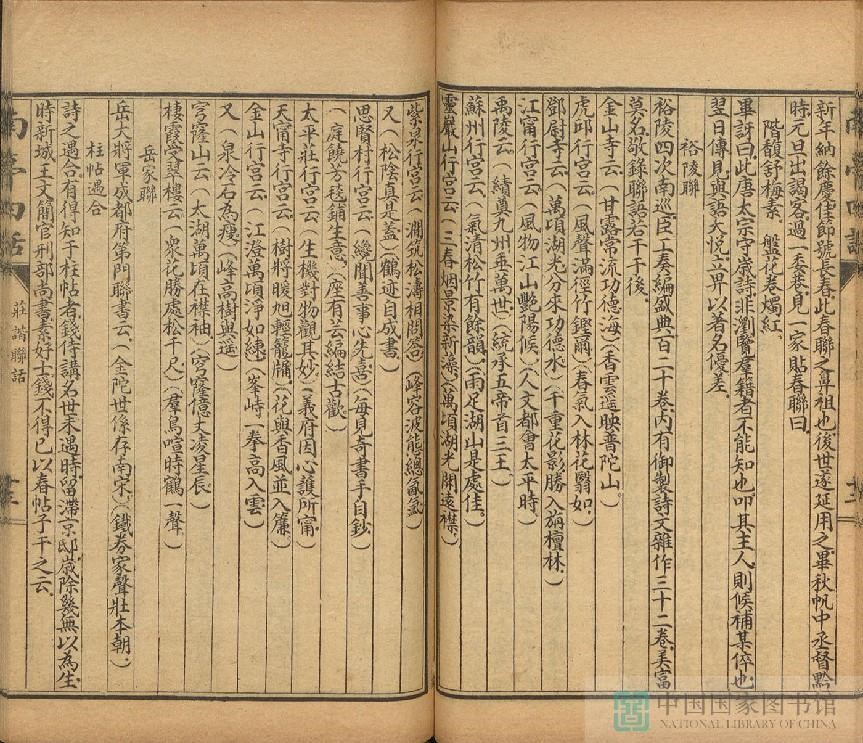 新年納餘慶佳節號長春此春聯之鼻祖也後世遂延用之畢秋帆中丞督黔
時元旦出謁客過一委巷見一家貼春聯曰
階馥舒梅素　盤花卷燭紅
畢訝曰此唐太宗守歲詩非瀏覽羣籍者不能知也叩其主人則候補某倅也
翌日傳見與語大悅立畀以著名優差
裕陵聯
裕陵四次南巡臣工奏編盛典百二十卷內有御製詩文雜作三十二卷美富
莫名敬錄聯語若干于後
金山寺云（甘露常流功德海）（香雲遥映普陀山）
虎邱行宮云（風聲滿徑竹鏗爾）（春氣入林花翳如）
鄧尉寺云（萬頃湖光分來功德水）（千重花影勝入旃檀林）
江甯行宮云（風物江山艷陽候）（人文都會太平時）
禹陵云（績奠九州垂萬世）（統承五帝首三王）
蘇州行宮云（氣清松竹有餘韻）（雨足湖山是處佳）
靈巖山行宮云（三春烟景染新藻）（萬頃湖光開遠襟）
紫泉行宮云（澗筑松濤相問答）（峰容波態總氤氳）
又（松陰真是蓋）（鶴迹自成書）
思賢村行宮云（纔聞善事心先喜）（每見奇書手自鈔）
（庭饒芳毯鋪生意）（座有芸編結古歡）
太平莊行宮云（生機對物觀其妙）（義府因心護所甯）
天甯寺行宮云（樹將暖旭輕籠牖）（花與香風並入簾）
金山行宮云（江澄萬頃淨如練）（峯峙一拳高入雲）
又（泉冷石為瘦）（峰高樹與遥）
穹窿山云（太湖萬頃在襟袖）（穹窿億丈凌星辰）
棲霞寶翠樓云（衆花勝處松千尺）（羣鳥喧時鶴一聲）
岳家聯
岳大將軍成都府第門聯書云（金陀世係存南宋）（鐵券家聲壯本朝）
柱帖遇合
詩之遇合有得知于柱帖者錢侍講名世未遇時留滯京邸歲除幾無以為生
時新城王文簡官刑部尚書素好士錢不得已以春帖子干之云
莊諧聯話